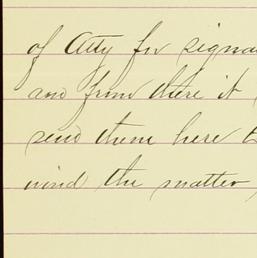 of Atty for signa
and from there it
send them here t
mind the matter,